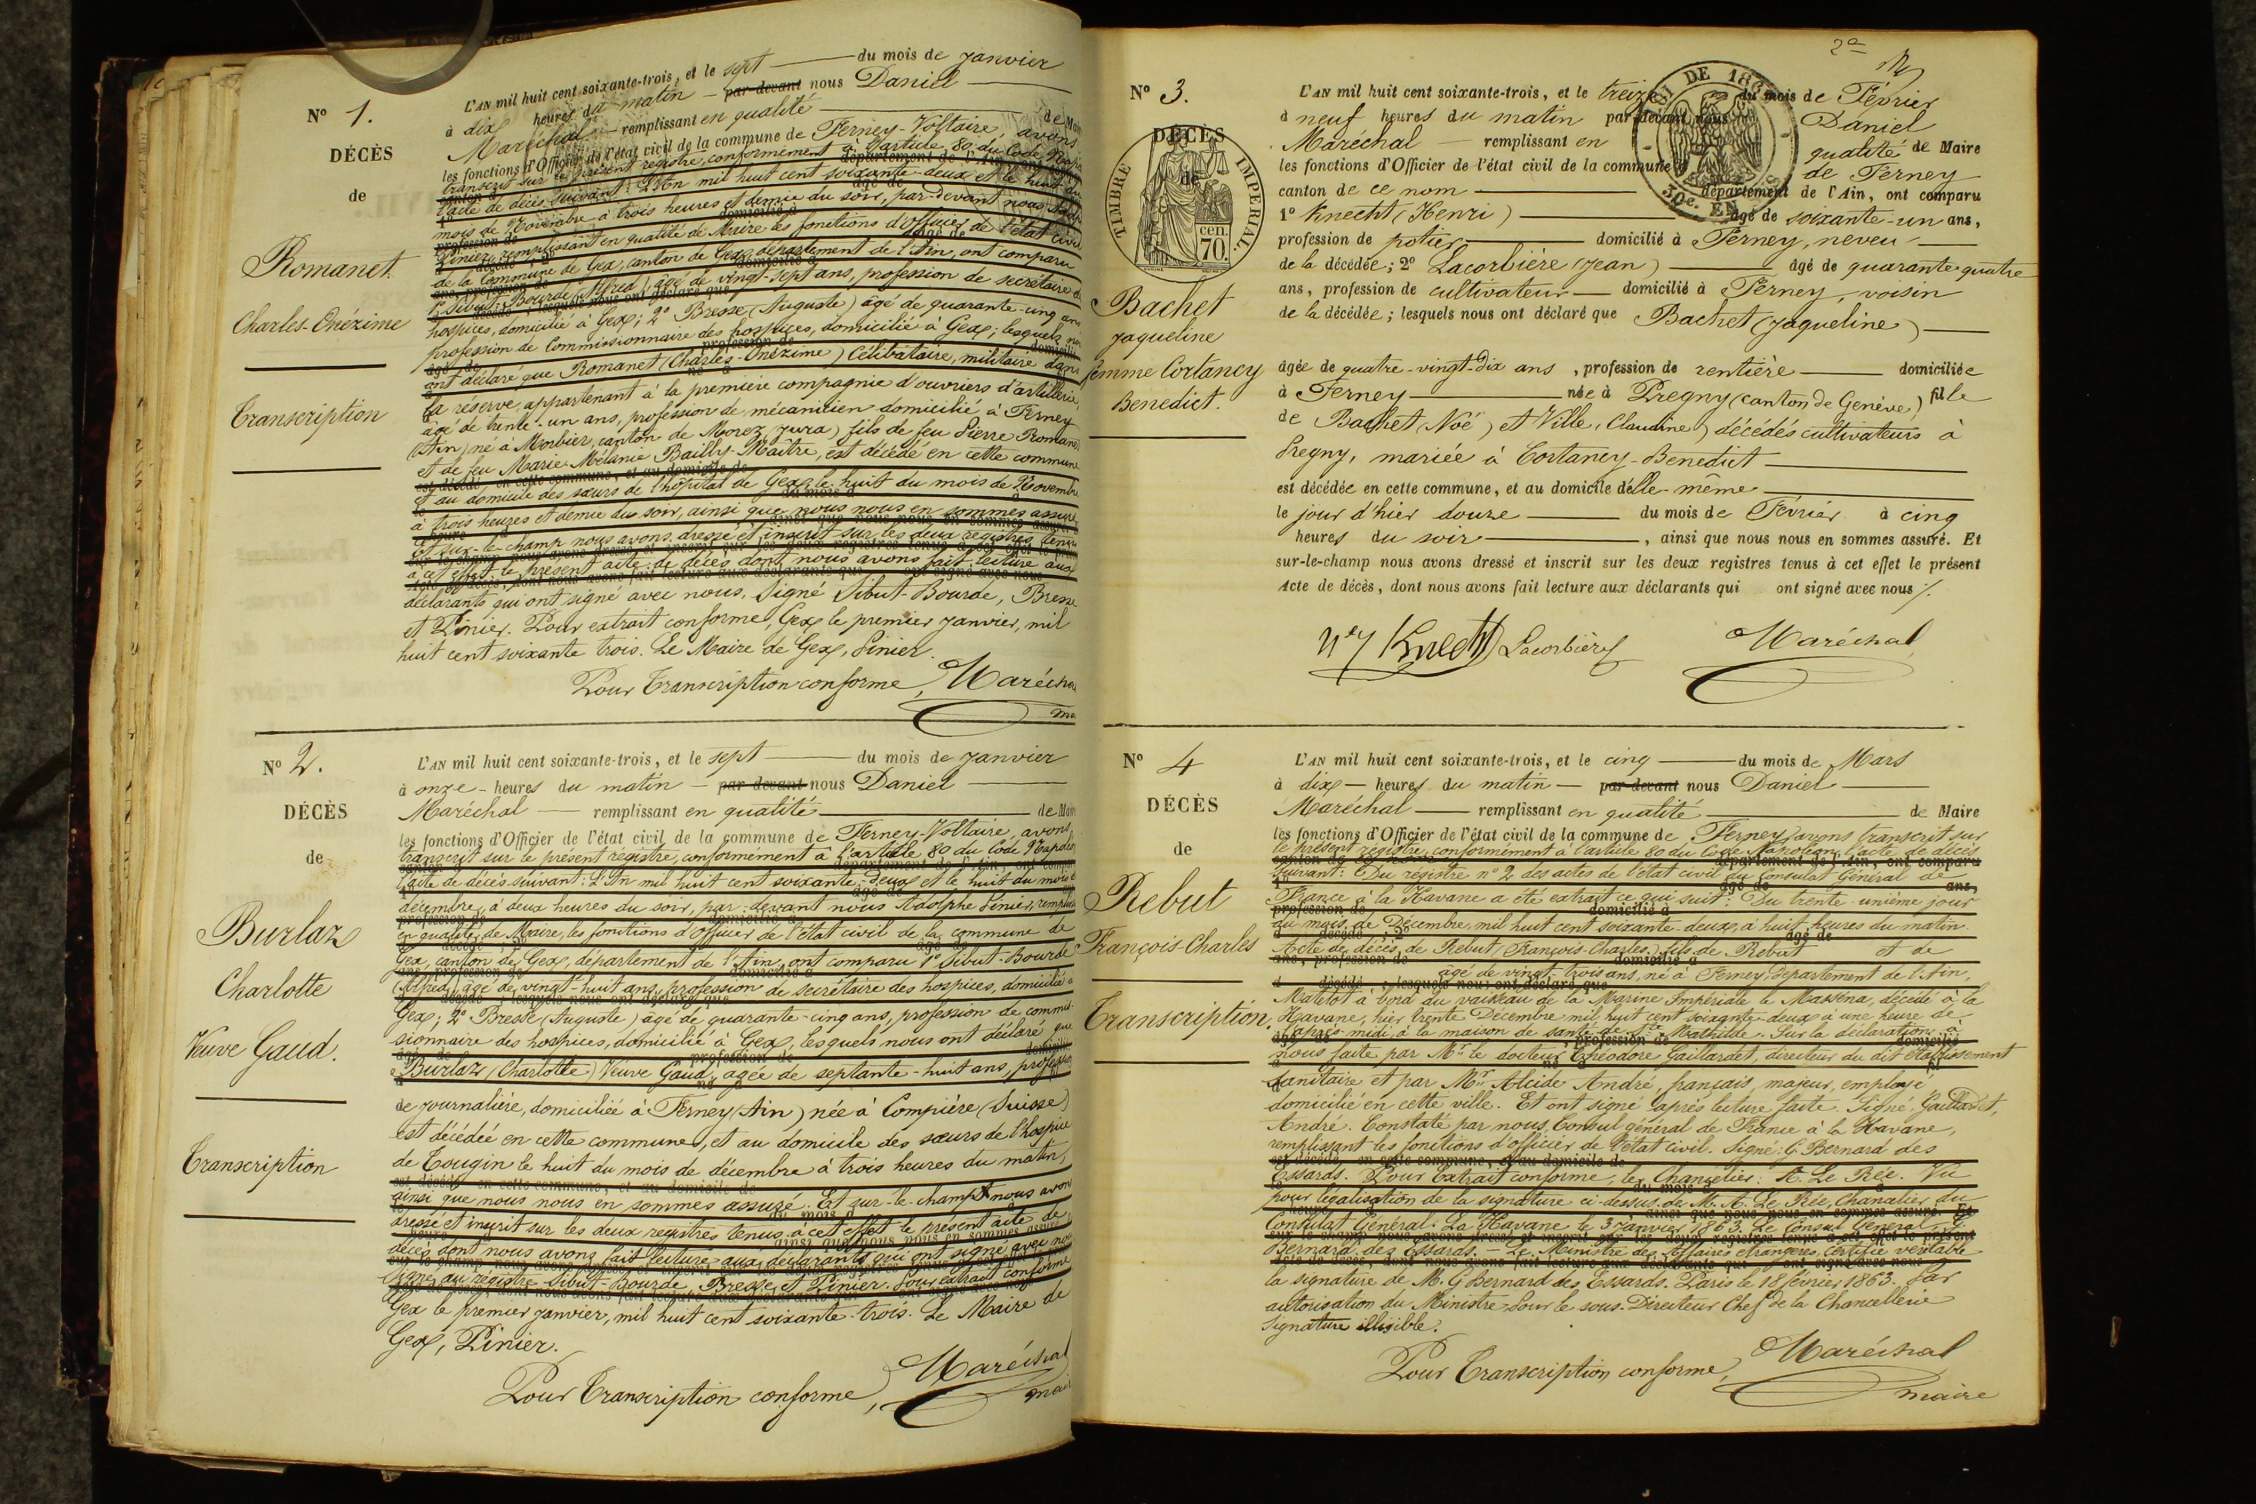 N° 1.
DÉCÈS
de
Romanet
Charles-Onézime
Transcription
L'AN mil huit cent soixante-trois, et le sept du mois de Janvier
à dix heures du matin par-devant nous Daniel
Maréchal remplissant en qualité de Maire
les fonctions d'Officier de l'état civil de la commune de Ferney-Voltaire, avons
transcrit sur le présent registre, conformément à l'article 80 du Code
l'acte de décès suivant: L'An mil huit cent soixante-deux et le huit du
mois de Novembre à trois heures et demie du soir, par-devant nous
Pinier, remplissant en qualité de Maire les fonctions d'Officier de l'état civil
de la Commune de Gex, canton de Gex, département de l'Ain, ont comparu
1° Sibut-Bourde (Alfred), âgé de vingt-sept ans, profession de secrétaire
hospices, domicilié à Gex; 2° Bresse (Auguste) âgé de quarante-cinq ans
profession de Commissionnaire des hospices, domicilié à Gex; lesquels nous
ont déclaré que Romanet (Charles-Onézime) Célibataire, militaire dans
la réserve appartenant à la première compagnie d'ouvriers d'artillerie,
âgé de trente-un ans, profession de mécanicien domicilié à Ferney
(Ain) né à Morbier, canton de Morez (Jura) fils de feu Pierre Romanet
et de feu Marie-Mélanie Bailly-Maître, est décédé en cette commune
et au domicile des sœurs de l'hôpital de Gex le huit du mois de Novembre
à trois heures et demie du soir, ainsi que nous nous en sommes assuré
Et sur-le-champ nous avons dressé et inscrit sur les deux registres tenus
à cet effet le présent acte de décès dont nous avons fait lecture aux
déclarants qui ont signé avec nous. Signé Sibut-Bourde, Bresse
et Pinier. Pour extrait conforme, Gex le premier Janvier, mil
huit cent soixante trois. Le Maire de Gex, Pinier.
Pour Transcription conforme, Maréchal
N° 2.
DÉCÈS
de
Burlaz
Charlotte
Veuve Gaud.
Transcription
L'AN mil huit cent soixante-trois, et le sept du mois de Janvier
à onze heures du matin par-devant nous Daniel
Maréchal remplissant en qualité de Maire
les fonctions d'Officier de l'état civil de la commune de Ferney-Voltaire, avons
transcrit sur le présent registre, conformément à l'article 80 du Code Napoléon
l'acte de décès suivant: L'An mil huit cent soixante-deux et le huit du mois de
décembre à deux heures du soir, par-devant nous Adolphe Pinier, remplissant
en qualité de Maire, les fonctions d'Officier de l'état civil de la commune de
Gex, canton de Gex, département de l'Ain, ont comparu 1° Sibut-Bourde
(Alfred), âgé de vingt-huit ans, profession de secrétaire des hospices, domicilié à
Gex; 2° Bresse (Auguste) âgé de quarante-cinq ans, profession de commis-
sionnaire des hospices, domicilié à Gex, lesquels nous ont déclaré que
Burlaz (Charlotte) Veuve Gaud, agée de septante-huit ans, profession
de journalière, domiciliée à Ferney (Ain) née à Compière (Suisse)
est décédée en cette commune, et au domicile des sœurs de l'hospice
de Tougin le huit du mois de décembre à trois heures du matin,
ainsi que nous nous en sommes assuré. Et sur-le-champ nous avons
dressé et inscrit sur les deux registres tenus à cet effet le présent acte de
décès dont nous avons fait lecture aux déclarants qui ont signé avec nous
Signé au registre Sibut-Bourde, Bresse et Pinier. Pour extrait conforme
Gex le premier Janvier, mil huit cent soixante-trois. Le Maire de
Gex, Pinier.
Pour Transcription conforme, Maréchal
maire
N° 3.
DÉCÈS
de
TIMBRE IMPERIAL
70 cen.
Bachet
Jaqueline
femme Cortancy
Benedict.
2e
L'AN mil huit cent soixante-trois, et le treize du mois de Février
à neuf heures du matin par-devant nous Daniel
Maréchal remplissant en qualité de Maire
les fonctions d'Officier de l'état civil de la commune de Ferney
canton de ce nom département de l'Ain, ont comparu
1° Knecht (Henri) âgé de soixante-un ans,
profession de potier domicilié à Ferney, neveu
de la décédée; 2° Lacorbière (Jean) âgé de quarante-quatre
ans, profession de cultivateur domicilié à Ferney, voisin
de la décédée; lesquels nous ont déclaré que Bachet (Jaqueline)
âgée de quatre-vingt-dix ans, profession de rentière domiciliée
à Ferney née à Pregny (canton de Genève) fille
de Bachet (Noé) et Ville (Claudine) décédés cultivateurs à
Pregny, mariée à Cortancy-Benedict
est décédée en cette commune, et au domicile d'elle-même
le jour d'hier douze du mois de Février à cinq
heures du soir, ainsi que nous nous en sommes assuré. Et
sur-le-champ nous avons dressé et inscrit sur les deux registres tenus à cet effet le présent
Acte de décès, dont nous avons fait lecture aux déclarants qui ont signé avec nous
Hry Knecht Lacorbière Maréchal
N° 4
DÉCÈS
de
Rebut
François-Charles
Transcription.
L'AN mil huit cent soixante-trois, et le cinq du mois de Mars
à dix heures du matin par-devant nous Daniel
Maréchal remplissant en qualité de Maire
les fonctions d'Officier de l'état civil de la commune de Ferney, avons transcrit sur
le présent registre, conformément à l'article 80 du Code Napoléon, l'acte de décès
suivant: Du registre n° 2 des actes de l'état civil du Consulat Général de
France à la Havane a été extrait ce qui suit: Du trente-unième jour
du mois de Décembre mil huit cent soixante-deux, à huit heures du matin.
Acte de décès de Rebut (François-Charles), fils de Rebut et de
âgé de vingt-trois ans, né à Ferney département de l'Ain,
Matelot à bord du vaisseau de la Marine Impériale le Masséna, décédé à la
Havane, hier trente Décembre mil huit cent soixante-deux à une heure de
l'après-midi à la maison de santé de Ste Mathilde. Sur la déclaration à
nous faite par Mr le docteur Théodore Gaillardet, directeur du dit établissement
sanitaire et par Mr Alcide André, français, majeur, employé
domicilié en cette ville. Et ont signé après lecture faite. Signé: Gaillardet,
André. Constaté par nous, Consul général de France à la Havane,
remplissant les fonctions d'officier de l'état civil. Signé: G. Bernard des
Essards. Pour Extrait conforme, le Chancelier: A. Le Rée. Vu
pour légalisation de la signature ci-dessus de M. A. Le Rée, Chancelier du
Consulat Général. La Havane le 3 Janvier 1863. Le Consul Général G.
Bernard des Essards. — Le Ministre des Affaires étrangères certifie véritable
la signature de M. G. Bernard des Essards. Paris le 18 février 1863. Par
autorisation du Ministre Pour le sous-Directeur Chef de la Chancellerie
Signature illisible.
Pour Transcription conforme, Maréchal
maire